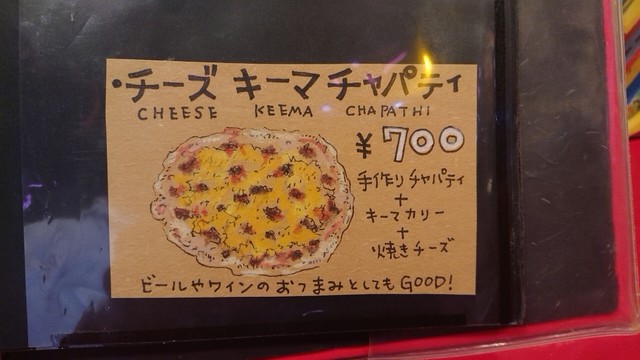 ・チーズ キーマ チャパティ
CHEESE KEEMA CHAPATHI
¥700
手作りチャパティ
+
キーマカリー
+
焼きチーズ
ビールやワインのおつまみとしてもGOOD!